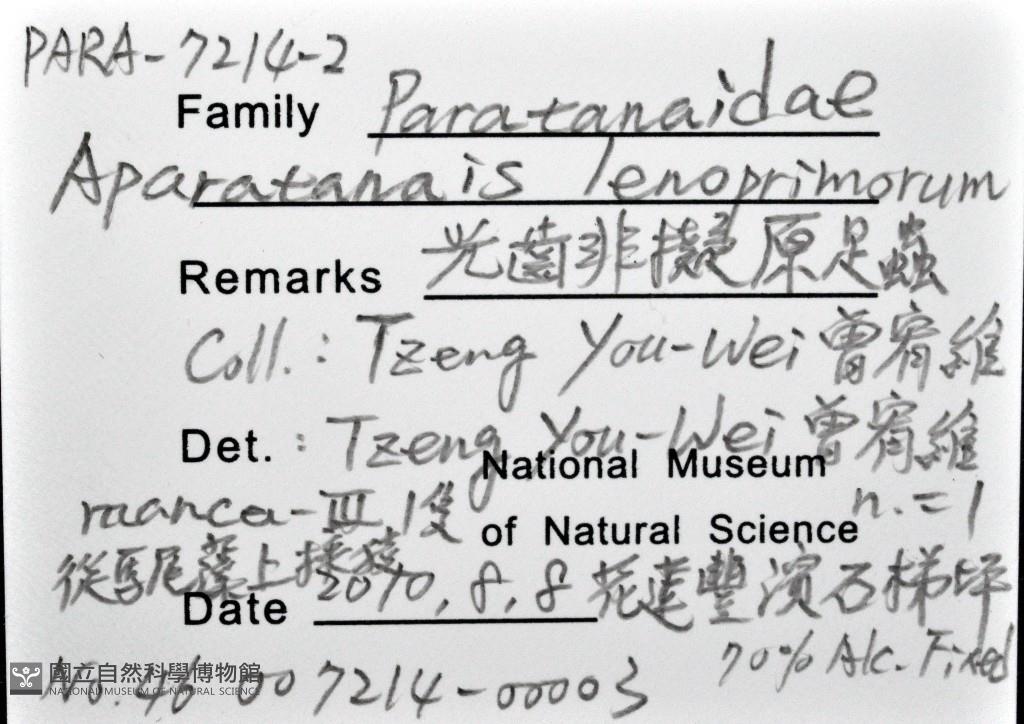 PARA-7214-2
Family Paratanaidae
Aparatanais lenoprimorum
Remarks 光齒非擬原足蟲
Coll.: Tzeng You-Wei 曾宥維
Det.: Tzeng You-Wei 曾宥維
National Museum
manca-III, 1隻
of Natural Science n.=1
從馬尾藻上採獲
Date 2010.8.8 花蓮豐濱石梯坪
70% Alc. Fixed
國立自然科學博物館
NATIONAL MUSEUM OF NATURAL SCIENCE
7214-00003